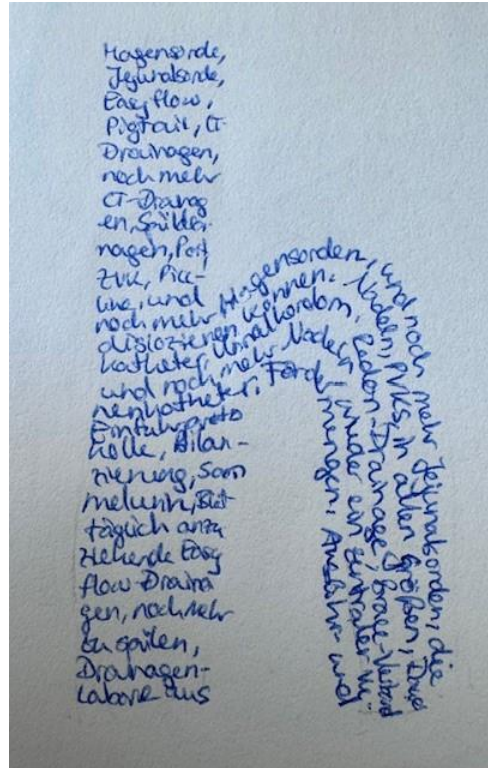 Magensonde,
Jejunalsonde,
Easyflow,
Pigtail, CT-
Drainagen,
noch mehr
CT-Drainag
en, Spüldrai
nagen, Port,
ZVK, Picc-
line, und
noch mehr Magensonden, und noch mehr Jejunalsonden, die
dislozieren können. Nadeln, PVKs, in allen Größen, Dauer
katheter, Urinalkondom, Redon-Drainage, Verband
und noch mehr Nadeln wieder ein zentraler Ve-
nenkatheter, Fördermengen. Ausfuhr- und
Einfuhrproto
kolle, Bilan-
zierung, Sam
melurin,
täglich anzu
ziehende Easy
flow-Draina
gen, noch mehr
zu spülen,
Drainagen-
Labore aus